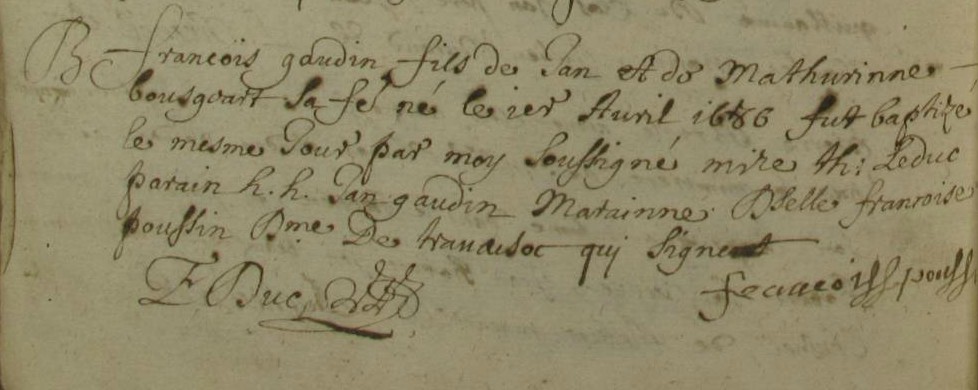 B françois gaudin fils de Jan et de Mathurinne
bousgoart sa fé né le ier Auril 1686 fut baptizé
le mesme Jour par moy soussigné mire th: Leduc
parain h. h. Jan gaudin Marainne Dselle francoise
poussin Dme De travusoc qui signent
LE Duc francoisse pouss